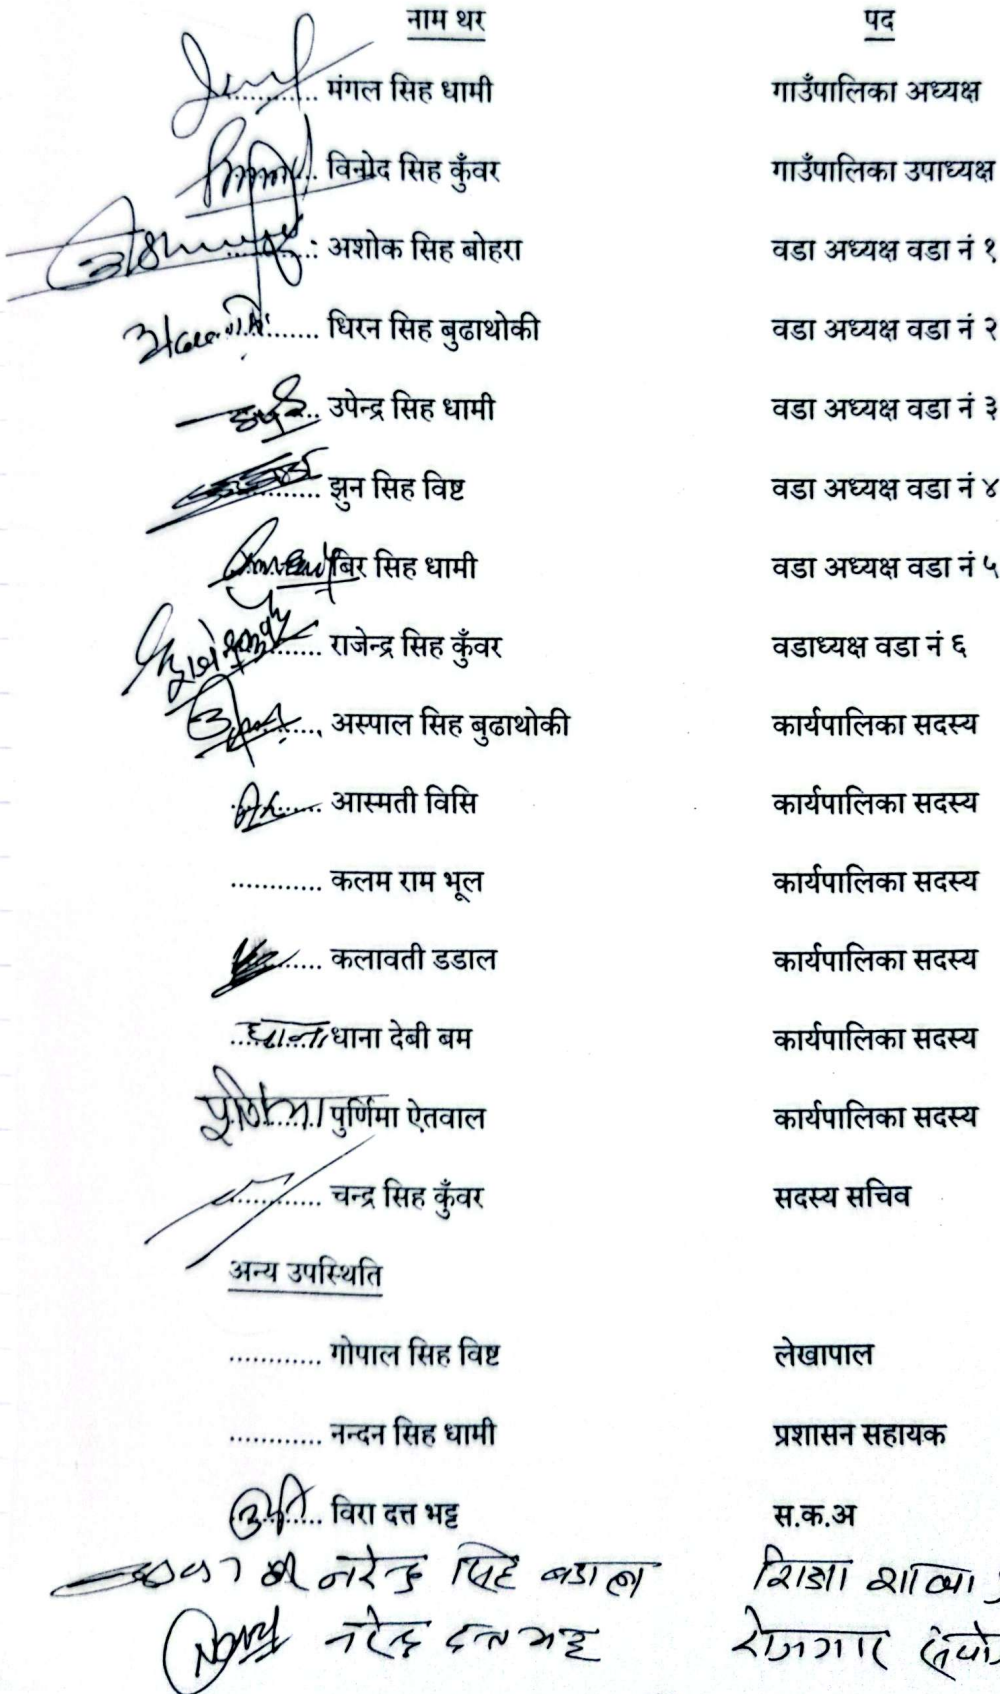 नाम थर पद
............ मंगल सिह धामी गाउँपालिका अध्यक्ष
विनोद सिह कुँवर गाउँपालिका उपाध्यक्ष
अशोक सिह बोहरा वडा अध्यक्ष वडा नं १
धिरन सिह बुढाथोकी वडा अध्यक्ष वडा नं २
उपेन्द्र सिह धामी वडा अध्यक्ष वडा नं ३
............ झुन सिह विष्ट वडा अध्यक्ष वडा नं ४
बिर सिह धामी वडा अध्यक्ष वडा नं ५
राजेन्द्र सिह कुँवर वडाध्यक्ष वडा नं ६
अस्पाल सिह बुढाथोकी कार्यपालिका सदस्य
आस्मती विसि कार्यपालिका सदस्य
............ कलम राम भूल कार्यपालिका सदस्य
कलावती डडाल कार्यपालिका सदस्य
धाना धाना देबी बम कार्यपालिका सदस्य
पुर्णिमा पुर्णिमा ऐतवाल कार्यपालिका सदस्य
............ चन्द्र सिह कुँवर सदस्य सचिव
अन्य उपस्थिति
............ गोपाल सिह विष्ट लेखापाल
............ नन्दन सिह धामी प्रशासन सहायक
विरा दत्त भट्ट स.क.अ
नरेन्द्र सिह बडाल शिक्षा शाखा
नरेन्द्र दत्त भट्ट रोजगार संयो